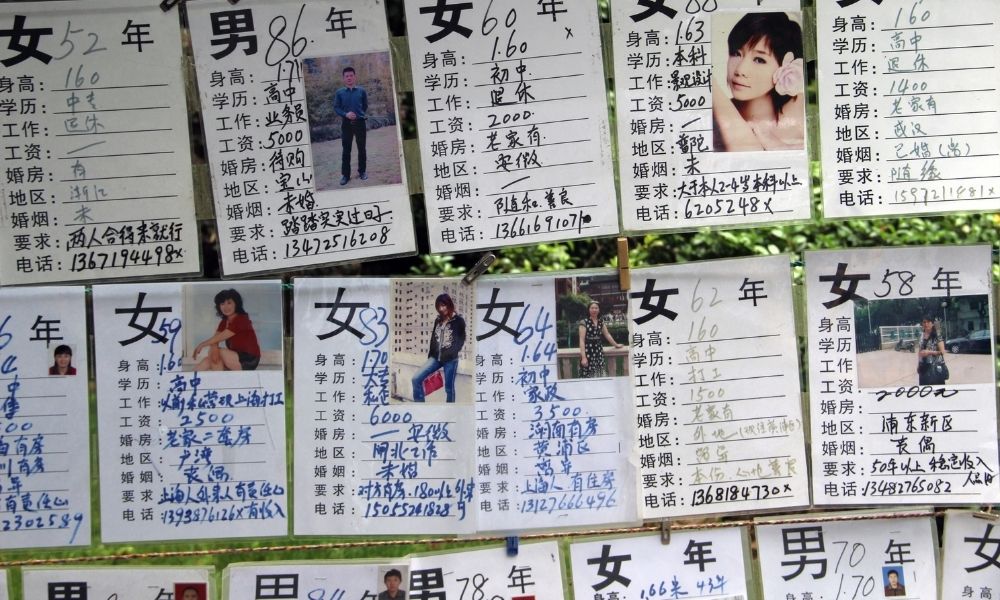 女 52 年
身高: 160
学历: 中专
工作: 退休
工资: 一
婚房: 有
地区: 浙江
婚烟: 未
要求: 两人合得来就行
电话: 1367194498x
男 86 年
身高: 1.71
学历: 高中
工作: 业务员
工资: 5000
婚房: 待购
地区: 宝山
婚烟: 未婚
要求: 踏踏实实过日子
电话: 13472516208
女 60 年
身高: 1.60
学历: 初中
工作: 退休
工资: 2000
婚房: 老家有
地区: 安徽
婚烟: 一
要求: 随和.善良
电话: 1366169107
女 88 年
身高: 1.63
学历: 本科
工作: 景观设计
工资: 5000
婚房: 一
地区: 普陀
婚烟: 未
要求: 大于本人2-4岁本科以上
电话: 6205248x
160
身高:
学历: 高中
工作: 退休
工资: 1400
婚房: 老家有
地区: 武汉
婚烟: 已婚(离)
要求: 随缘
电话: 1597211481x
年
2302589
女 59
身高: 1.60
学历: 高中
工作:
工资: 2500
婚房: 老家二套房
地区: 卢湾
婚烟: 丧偶
要求: 上海人外来人有责任心
电话: 1393876126x有收入
女 83
身高: 1.70
学历: 大专
工作:
工资: 6000
婚房: 一 安徽
地区: 闸北工作
婚姻: 未婚
要求: 对方有房.180以上
电话: 15055241828
女 64
身高: 1.64
学历: 初中
工作: 家政
工资: 3500
婚房: 湖南有房
地区: 黄浦区
婚姻: 离异
要求: 上海人 有住房
电话: 13127666496
女 62 年
身高: 160
学历: 高中
工作: 打工
工资: 1500
婚房: 老家有
地区: 外地
婚烟: 离异
要求: 本份.心地善良
电话: 1368184730x
女 58 年
身高:
学历:
工作:
工资: 2000
婚房:
地区: 浦东新区
婚烟: 丧偶
要求: 50年以上 稳定收入
电话: 13482765082
男
男
男 78 年
女 年
1.66米 43年
男 70 年
身高: 1.70
女